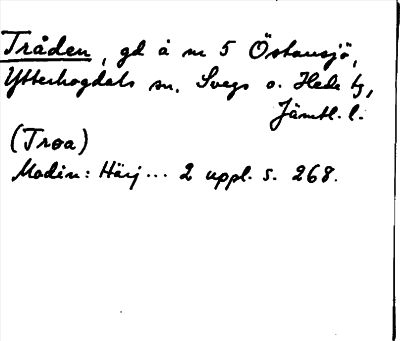 Tråden, gd å nr 5 Östansjö,
Ytterhogdals sn, Svegs o. Hede tg,
Jämtl. l.
(Troa)
Modin: Härj... 2 uppl. s. 268.